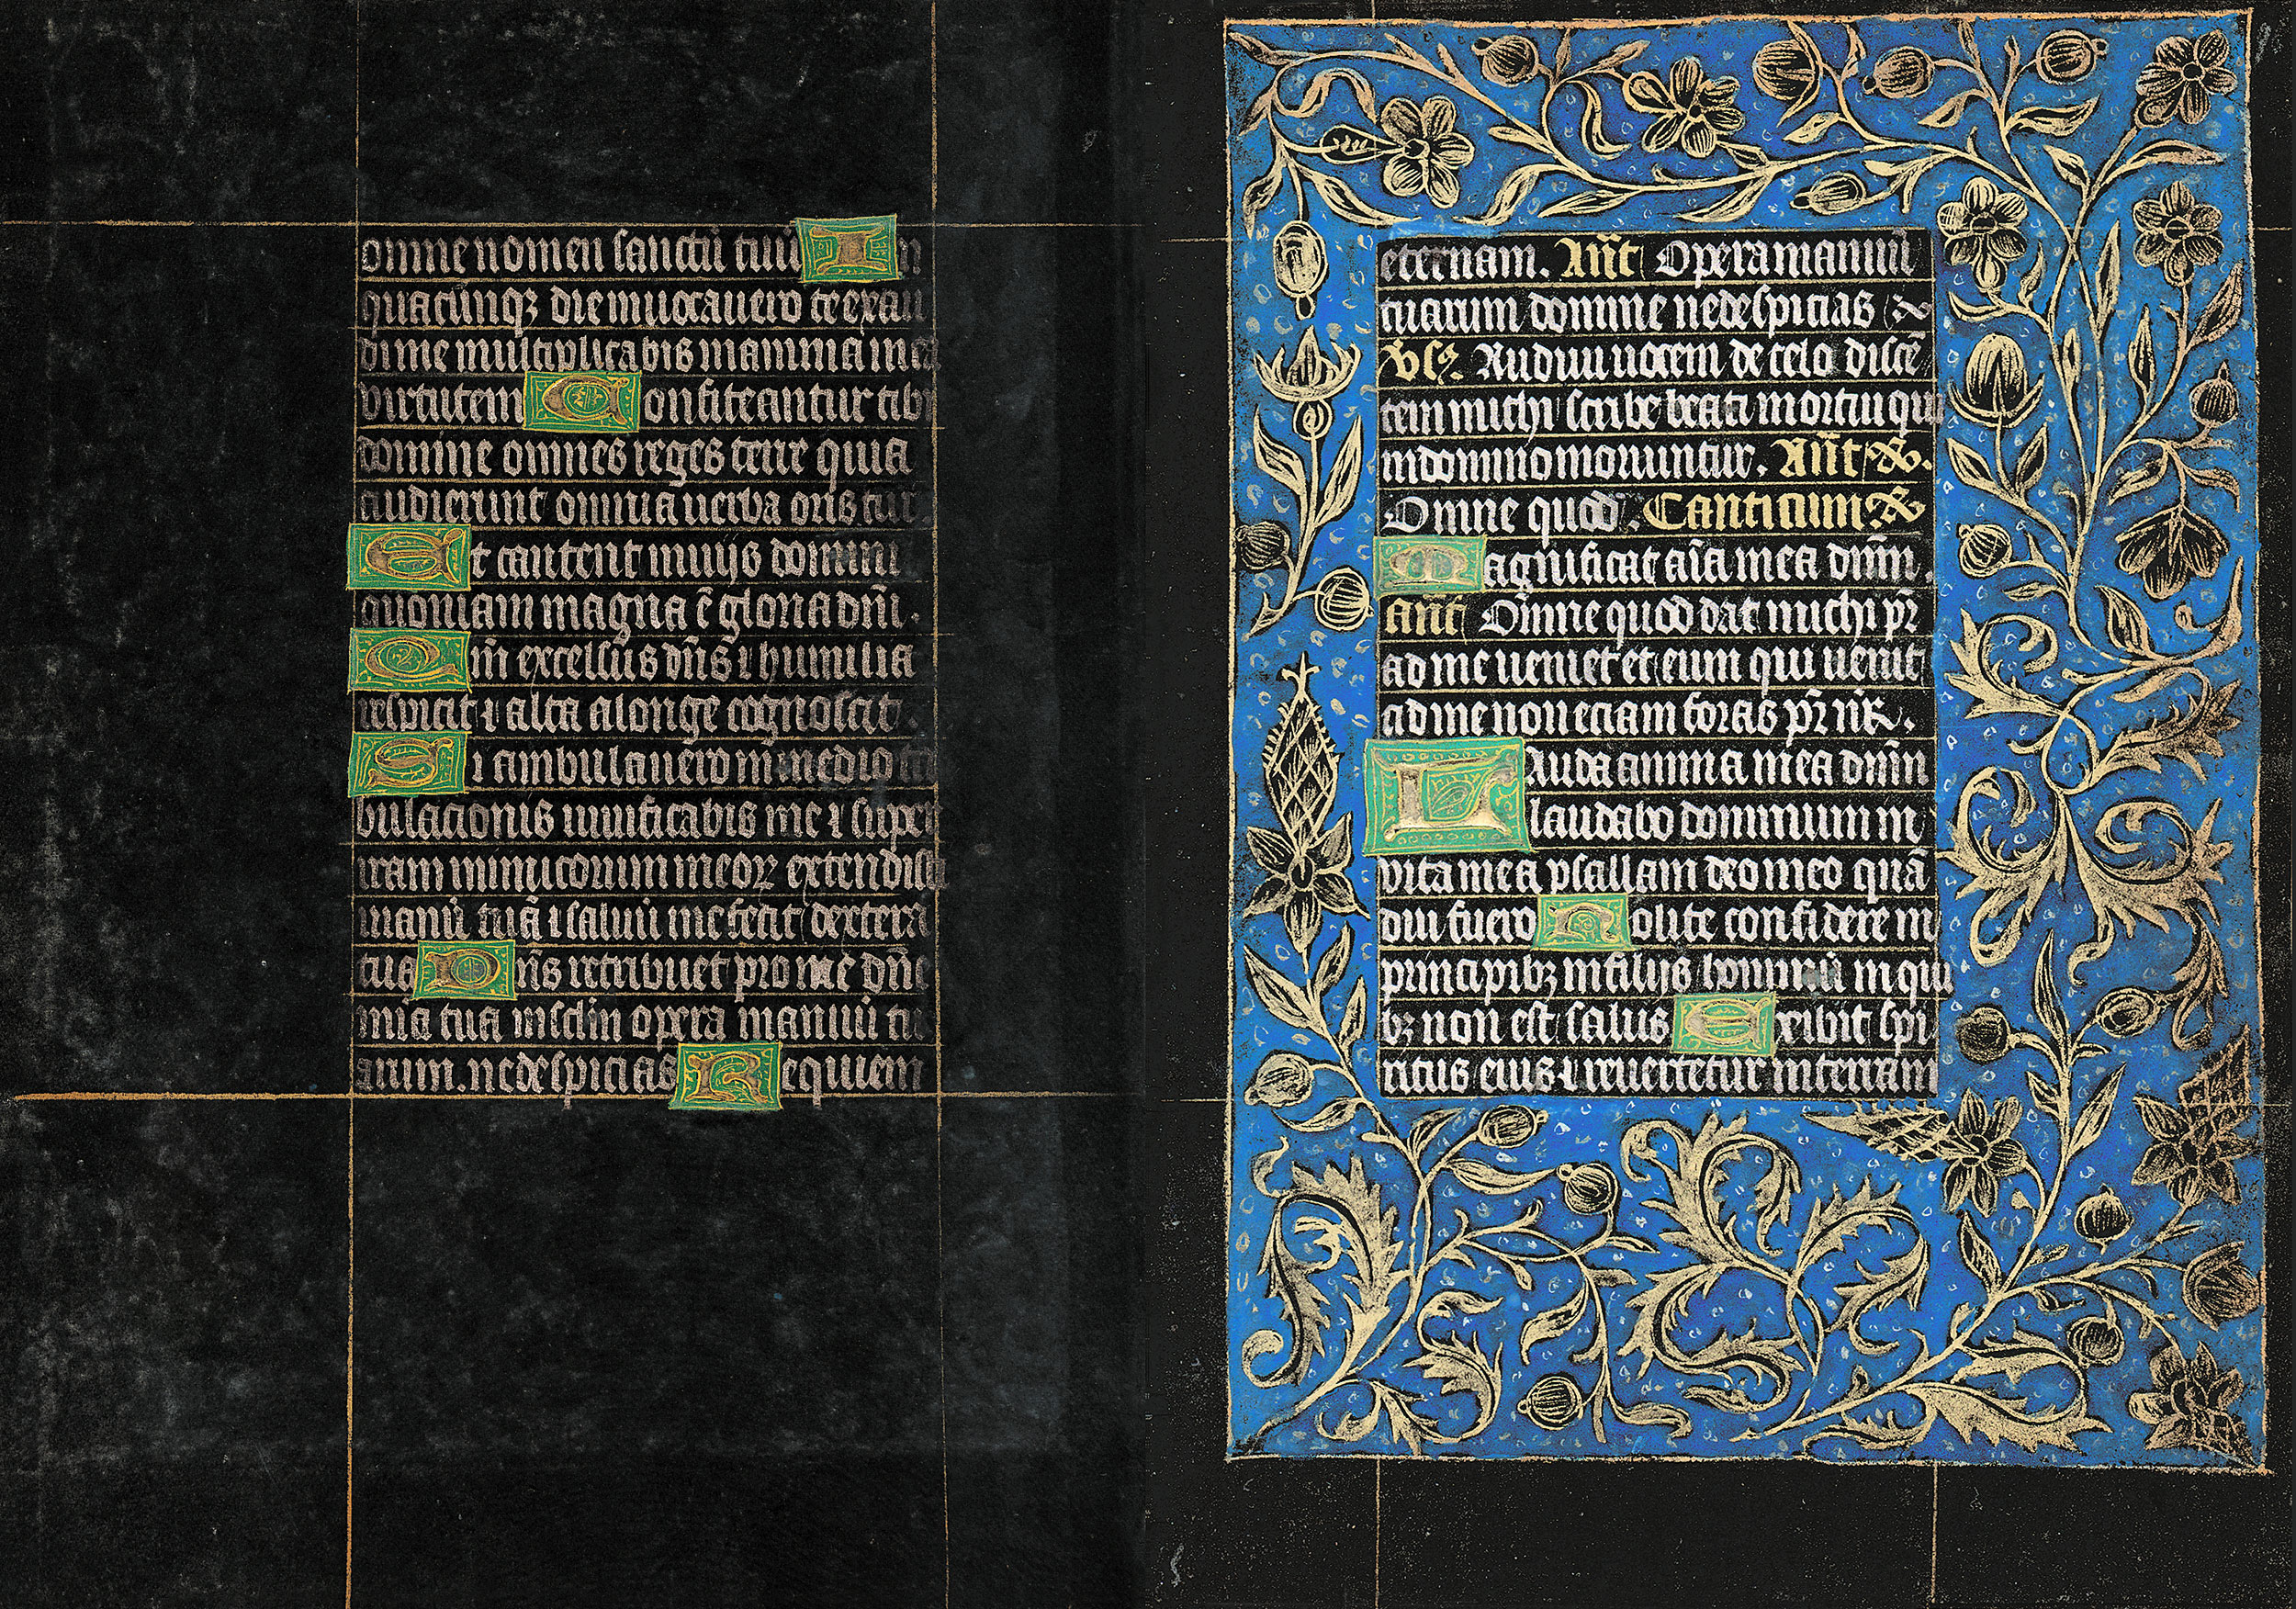 omne nomen sanctū tuū In
quacunqꝫ die inuocauero te exau
di me multiplicabis in anima mea
virtutem Confiteantur tibi
domine omnes reges terre quia
audierunt omnia uerba oris tui
Et cantent in uijs domini
quoniam magna ē gloria dn̄i.
Qm̄ excelsus dn̄s ⁊ humilia
respicit ⁊ alta alonge cognoscit.
Si ambulauero in medio tri
bulacionis uiuificabis me ⁊ super
iram inimicorum meoꝝ extendisti
manū tuā ⁊ saluū me fecit dextera
tua Dn̄s retribuet pro me dn̄e
mīa tua in sclm̄ opera manuū tu
arum. ne despicias Requiem
eternam. Ant̄ Opera manuū
tuarum domine ne despicias
v̄sꝯ. Audiui uocem de celo dicē
tem michi scribe beati mortui qui
in domino moriuntur. Ant̄
Omne quod. Canticum
Magnificat aīa mea dnm̄.
ant̄ Omne quod dat michi pr̄
ad me ueniet et eum qui uenit
ad me non eciam foras pr̄ nr̄.
LAuda anima mea dnm̄
laudabo dominum in
vita mea psallam deo meo quā
diu fuero Nolite confidere in
principibꝫ in filijs hominū in qui
bꝫ non est salus Exibit spi
ritus eius ⁊ reuertetur in terram